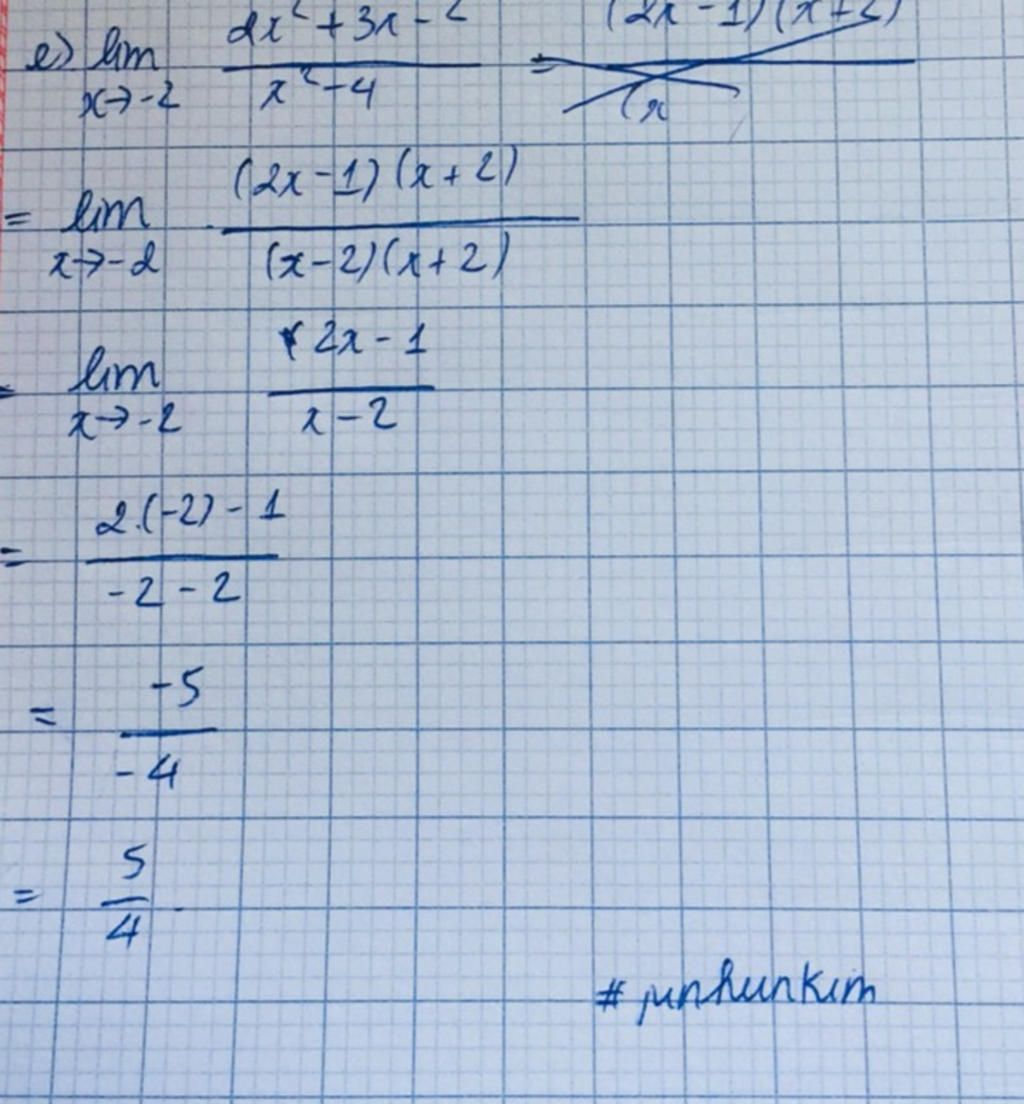 e) lim x→-2 (2x² + 3x - 2)/(x² - 4) =
= lim x→-2 ((2x - 1)(x + 2))/((x - 2)(x + 2))
= lim x→-2 (2x - 1)/(x - 2)
= (2.(-2) - 1)/(-2 - 2)
= (-5)/(-4)
= 5/4 .
# junhunkim